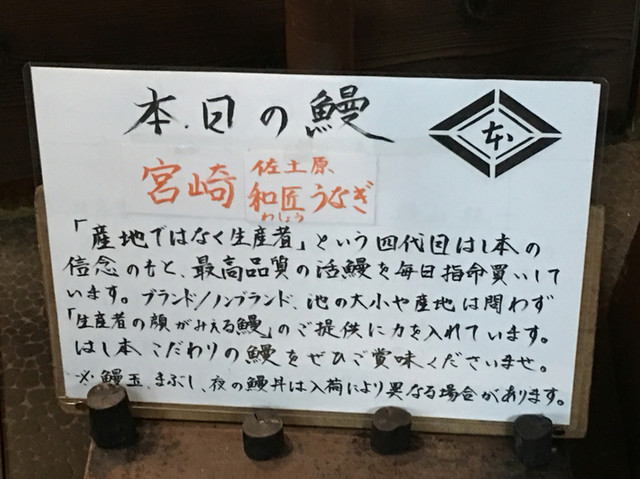 本日の鰻
本
宮崎
佐土原
和匠うなぎ
わしょう
「産地ではなく生産者」という四代目はし本の
信念のもと、最高品質の活鰻を毎日指命買いして
います。ブランド/ノンブランド、池の大小や産地は問わず
「生産者の顔がみえる鰻」のご提供に力を入れています。
はし本こだわりの鰻をぜひご賞味くださいませ。
※鰻玉、まぶし、夜の鰻丼は入荷により異なる場合があります。